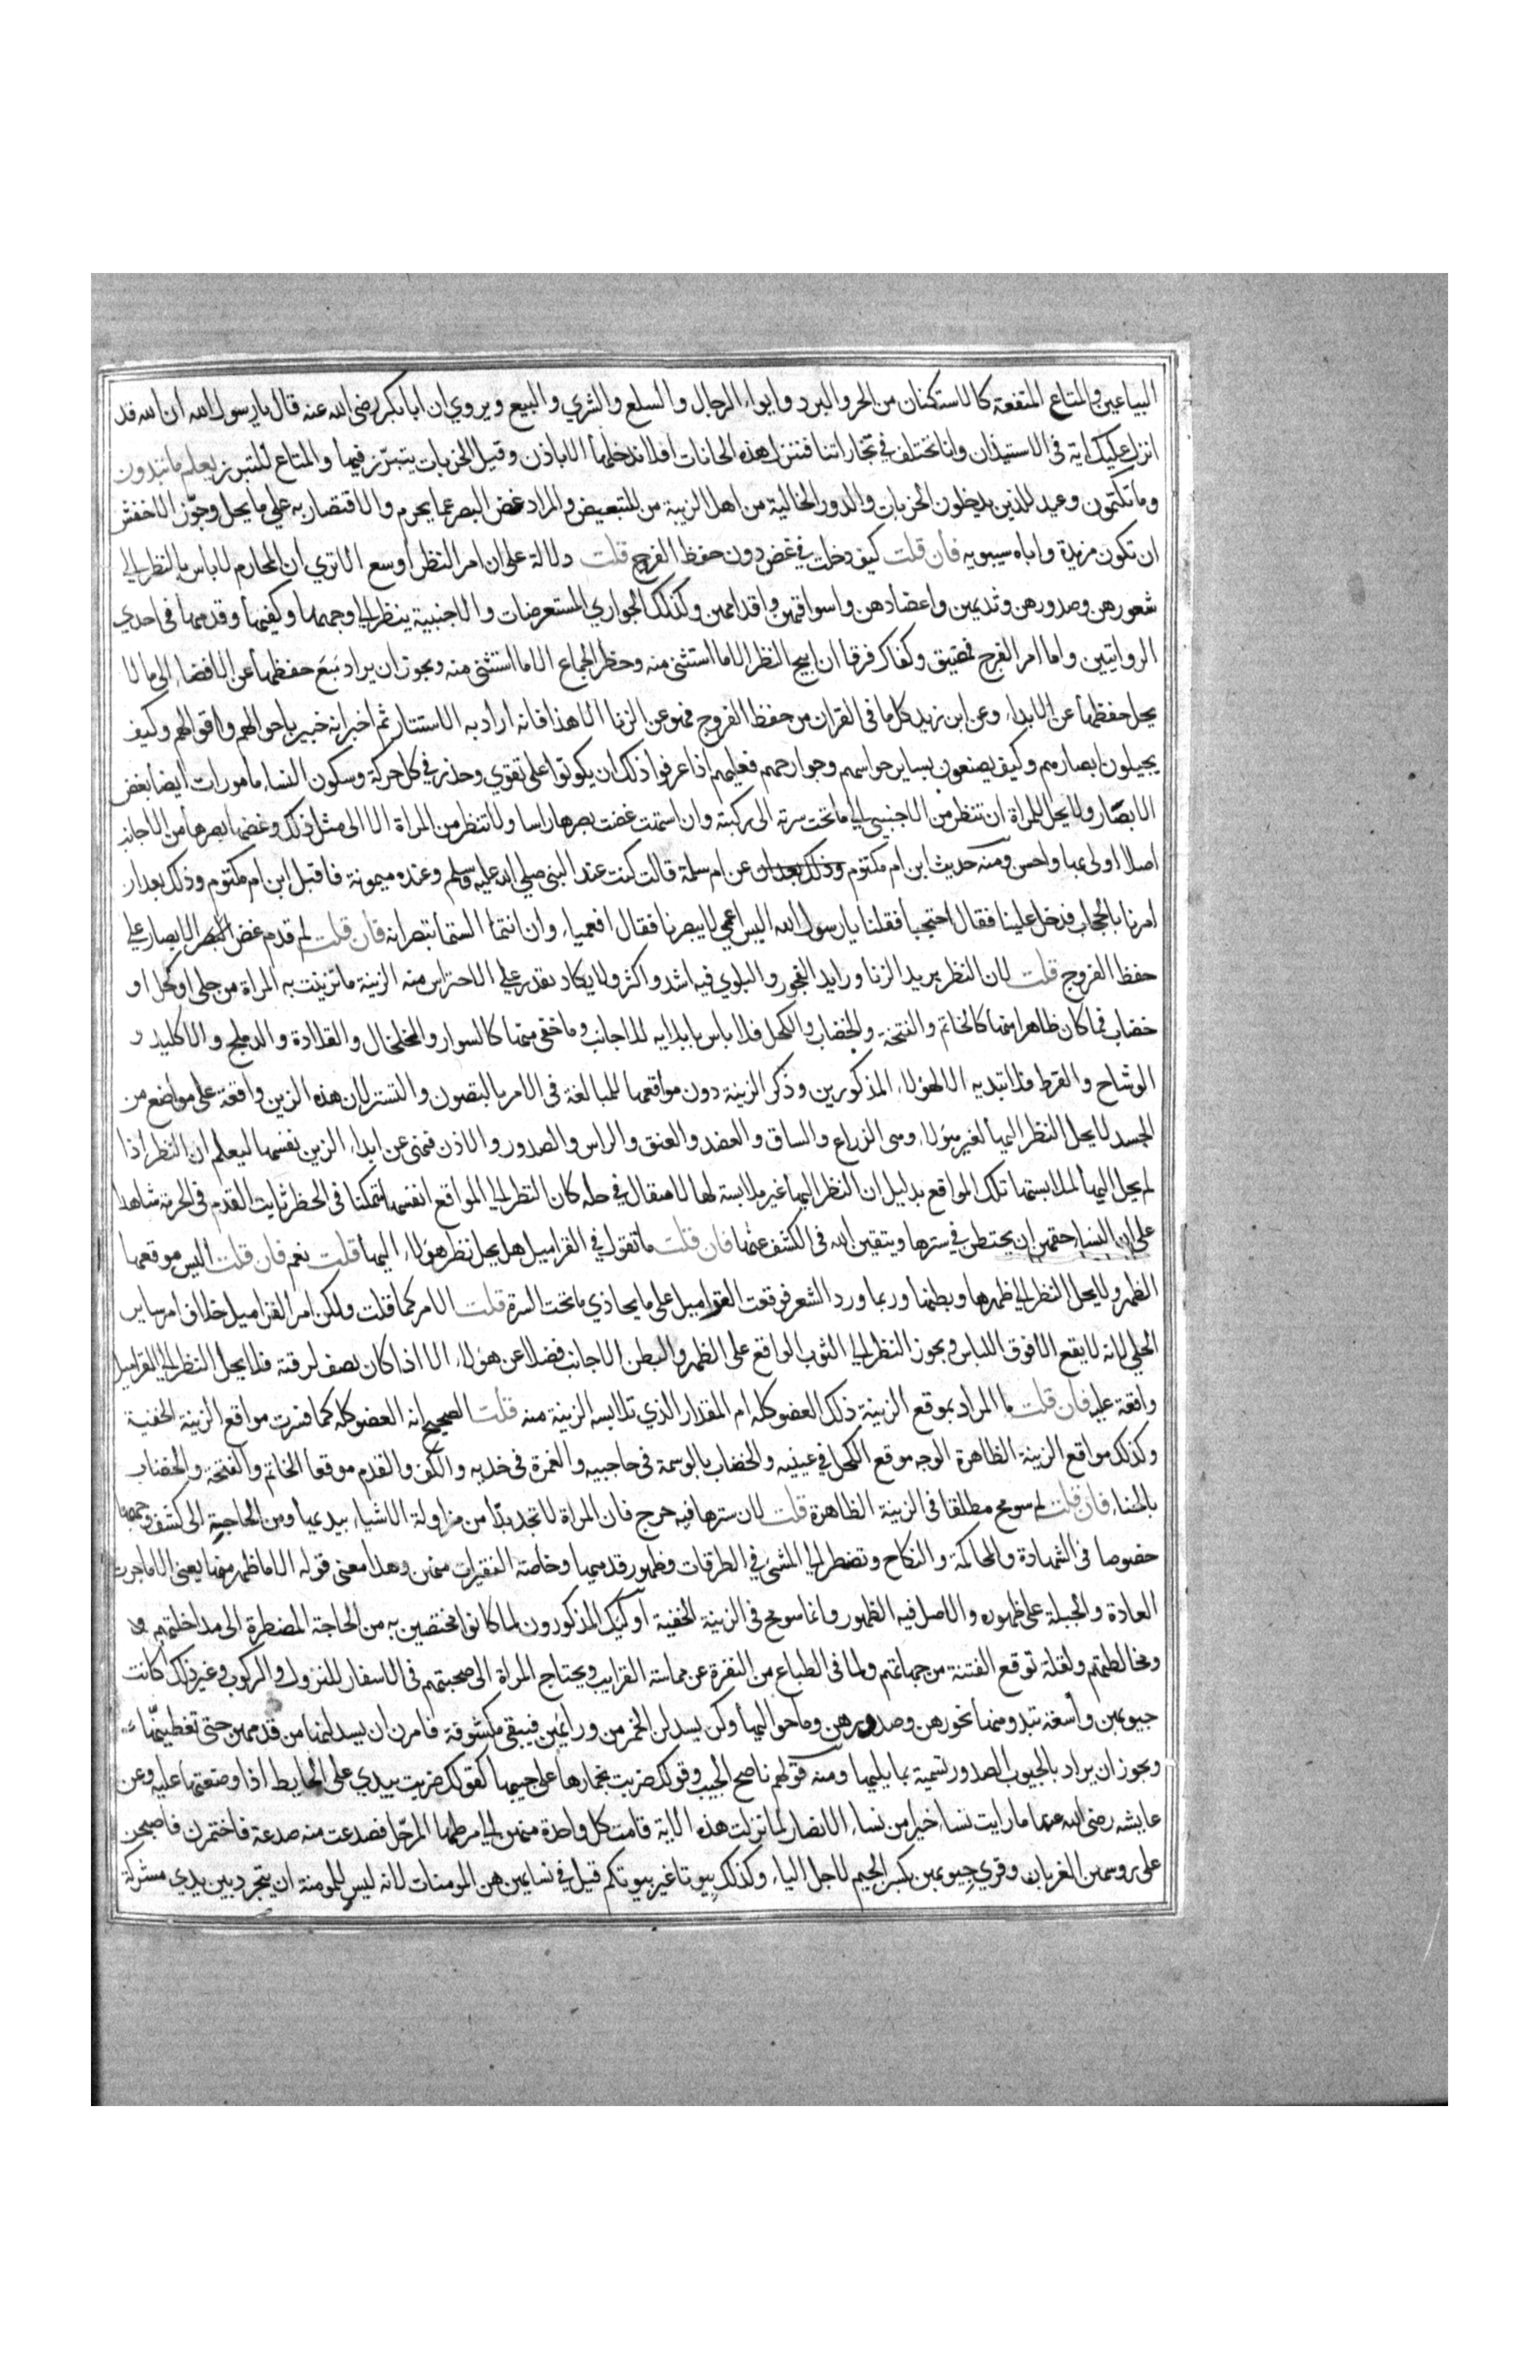 البياعين والمتاع المنفعة كالاستكنان من الحر والبرد وايواء الرجال والسلع والشري والبيع ويروي ان ابا بكر رضى الله عنه قال يا رسول الله ان الله قد
انزل عليك اية فى الاستيذان وانا نختلف في تجاراتنا فننزل هذه الخانات افلا ندخلها الا باذن وقيل الخربات يتبرّز فيها والمتاع للتبرز يعلم ما تبدون
وما تكتمون وعيد للذين يدخلون الخربات والدور الخالية من اهل الريبة من للتبعيض والمراد غض البصر عما يحرم والاقتصار به علي ما يحل وجوّز الاخفش
ان تكون مزيدة واباه سيبويه فان قلت كيف دخلت في غض دون حفظ الفرج قلت دلالة على ان امر النظر اوسع الا تري ان المحارم لا باس بالنظر الي
شعورهن وصدورهن وثديهن واعضادهن واسواقهن واقدامهن وكذلك الجواري المستعرضات والاجنبية ينظر الي وجهها وكفيها وقدميها في احدي
الروايتين واما امر الفرج فمضيق وكفاك فرقا ان ابيح النظر الا ما استثنى منه وحظر الجماع الا ما استثنى منه ويجوز ان يراد مَعَ حفظها عن الافضاء الى ما لا
يحل حفظها عن الابداء وعن ابن زيد كل ما فى القران من حفظ الفروج فهو عن الزنا الا هذا فانه اراد به الاستتار ثم اخبر انه خبير باحوالهم واقوالهم وكيف
يجيلون ابصارهم وكيف يصنعون بساير حواسهم وجوارحهم فعليهم اذا عرفوا ذلك ان يكونوا على تقوي وحذر في كل حركة وسكون النساء مامورات ايضا بغض
الابصّار ولا يحل للمراة ان تنظر من الاجنبى الي ما تحت سرته الى ركبته وان استهت غضت بصرها راسا ولا تنظر من المراة الا الى مثل ذلك وغضها بصرها من الاجانب
اصلا اولى بها واحسن ومنه حديث ابن ام مكتوم وذلك بعد ان عن ام سلمة قالت كنت عند النبى صلي الله عليه وسلم وعنده ميمونة فاقبل ابن ام مكتوم وذلك بعد ان
امرنا بالحجاب فدخل علينا فقال احتجبا فقلنا يا رسول الله اليس اعمي لا يبصرنا فقال افعمياء وان انتما الستما تبصرانه فان قلت لم قدم غض البصر الابصار علي
حفظ الفروج قلت لان النظر بريد الزنا ورايد الفجور والبلوي فيه اشد واكثر ولا يكاد يقدر علي الاحتراس منه الزينة ما تزينت به المراة من حلى او كحل او
خضاب فما كان ظاهرا منها كالخاتم والفتخة والخضاب والكحل فلا باس بابدايه للاجانب وما خفى منها كالسوار والخلخال والقلادة والدملج والاكليل و
الوشاح والقرط فلا تبديه الا لهولاء المذكورين وذكر الزينة دون مواقعها للمبالغة فى الامر بالتصون والتستر لان هذه الزين واقعة على مواضع من
الجسد لا يحل النظر اليها لغير هولاء وهى الزراع والساق والعضد والعنق والراس والصدور والاذن فنهى عن ابداء الزين نفسها ليعلم ان النظر اذا
لم يحل اليها لملابستها تلك المواقع بدليل ان النظر اليها غير ملابسة لها لا مقال في حله كان النظر الي المواقع انفسها متمكنا فى الحظر ثابت القدم فى الحرمة شاهدا
على ان النساء حقهن ان يحتطن في سترها ويتقين الله فى الكشف عنها فان قلت ما تقول في القراميل هل يحل نظر هولاء اليها قلت نعم فان قلت اليس موقعها
الظهر ولا يحل النظر الي ظهرها وبطنها وربما ورد الشعر فوقعت القراميل على ما يحاذي ما تحت السرة قلت الامر كما قلت ولكن امر القراميل خلاف امر ساير
الحلي لانه لا يقع الا فوق اللباس ويجوز النظر الي الثوب الواقع على الظهر والبطن الاجانب فضلا عن هولاء الا اذا كان يصف لرقته فلا يحل النظر الي القراميل
واقعة عليه فان قلت ما المراد بموقع الزينة ذلك العضو كله ام المقدار الذي تلابسه الزينة منه قلت الصحيح انه العضو كله كما فسرت مواقع الزينة الخفية
وكذلك مواقع الزينة الظاهرة الوجه موقع الكحل في عينيه والخضاب بالوسمة فى حاجبيه والغمرة فى خديه والكف والقدم موقعا الخاتم والفتخة والخضاب
بالحناء فان قلت لم سومح مطلقا فى الزينة الظاهرة قلت لان سترها فيه حرج فان المراة لا تجد بدّا من مزاولة الاشياء بيديها ومن الحاجة الى كشف وجهها
خصوصا فى الشهادة والمحاكمة والنكاح وتضطر الي المشى في الطرقات وظهور قدميها وخاصة الفقيرات منهن وهذا معنى قوله الا ما ظهر منها يعنى الا ما جرت
العادة والجبلة على ظهوره والاصل فيه الظهور وانما سومح فى الزينة الخفية اوليك المذكورون لما كانوا مختصين به من الحاجة المضطرة الى مداخلتهم و
ومخالطتهم ولقلة توقع الفتنة من جهاتهم ولما فى الطباع من النفرة عن مماسة القرايب ويحتاج المراة الى صحبتهم فى الاسفار للنزول والركوب وغير ذلك كانت
جيوبهن واسعة تبدو منها نحورهن وصدورهن وما حواليها وكن يسدلن الخمر من ورايهن فيبقى مكشوفة فامرن ان يسدلنها من قدمهن حتى تغطينّها
ويجوز ان يراد بالجيوب الصدور تسمية بما يليها ومنه قولهم ناصح الجيب وقولك ضربت بخمارها على جيبها كقولك ضربت بيدي على الحايط اذا وضعتها عليه وعن
عايشه رضى الله عنها ما رايت نساء خيرا من نساء الانصار لما نزلت هذه الاية قامت كل واحدة منهن الي مرطها المرحّل فصدعت منه صدعة فاختمرن فاصبحن
على روسهن الغربان وقري جِيوبهن بكسر الجيم لاجل الياء وكذلك بِيوتا غير بيوتكم قيل في نسايهن هن المومنات لانه ليس للمومنة ان يتجرد بين يدي مشركة